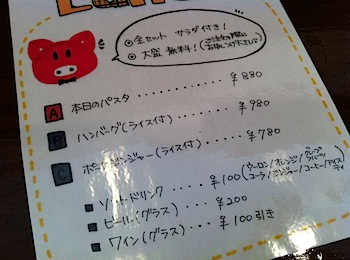 ◎全セット サラダ付き!
◎大盛 無料!
A 本日のパスタ ‥‥‥‥ ¥880
B ハンバーグ(ライス付) ‥‥ ¥980
C ポークジンジャー(ライス付) ‥‥ ¥780
■ソフトドリンク ‥‥‥ ¥100(ウーロン/オレンジ/グレープフルーツ
コーラ/ジンジャー/コーヒー/アイスティ)
■ビール(グラス) ‥‥ ¥200
■ワイン(グラス) ‥‥ ¥100引き